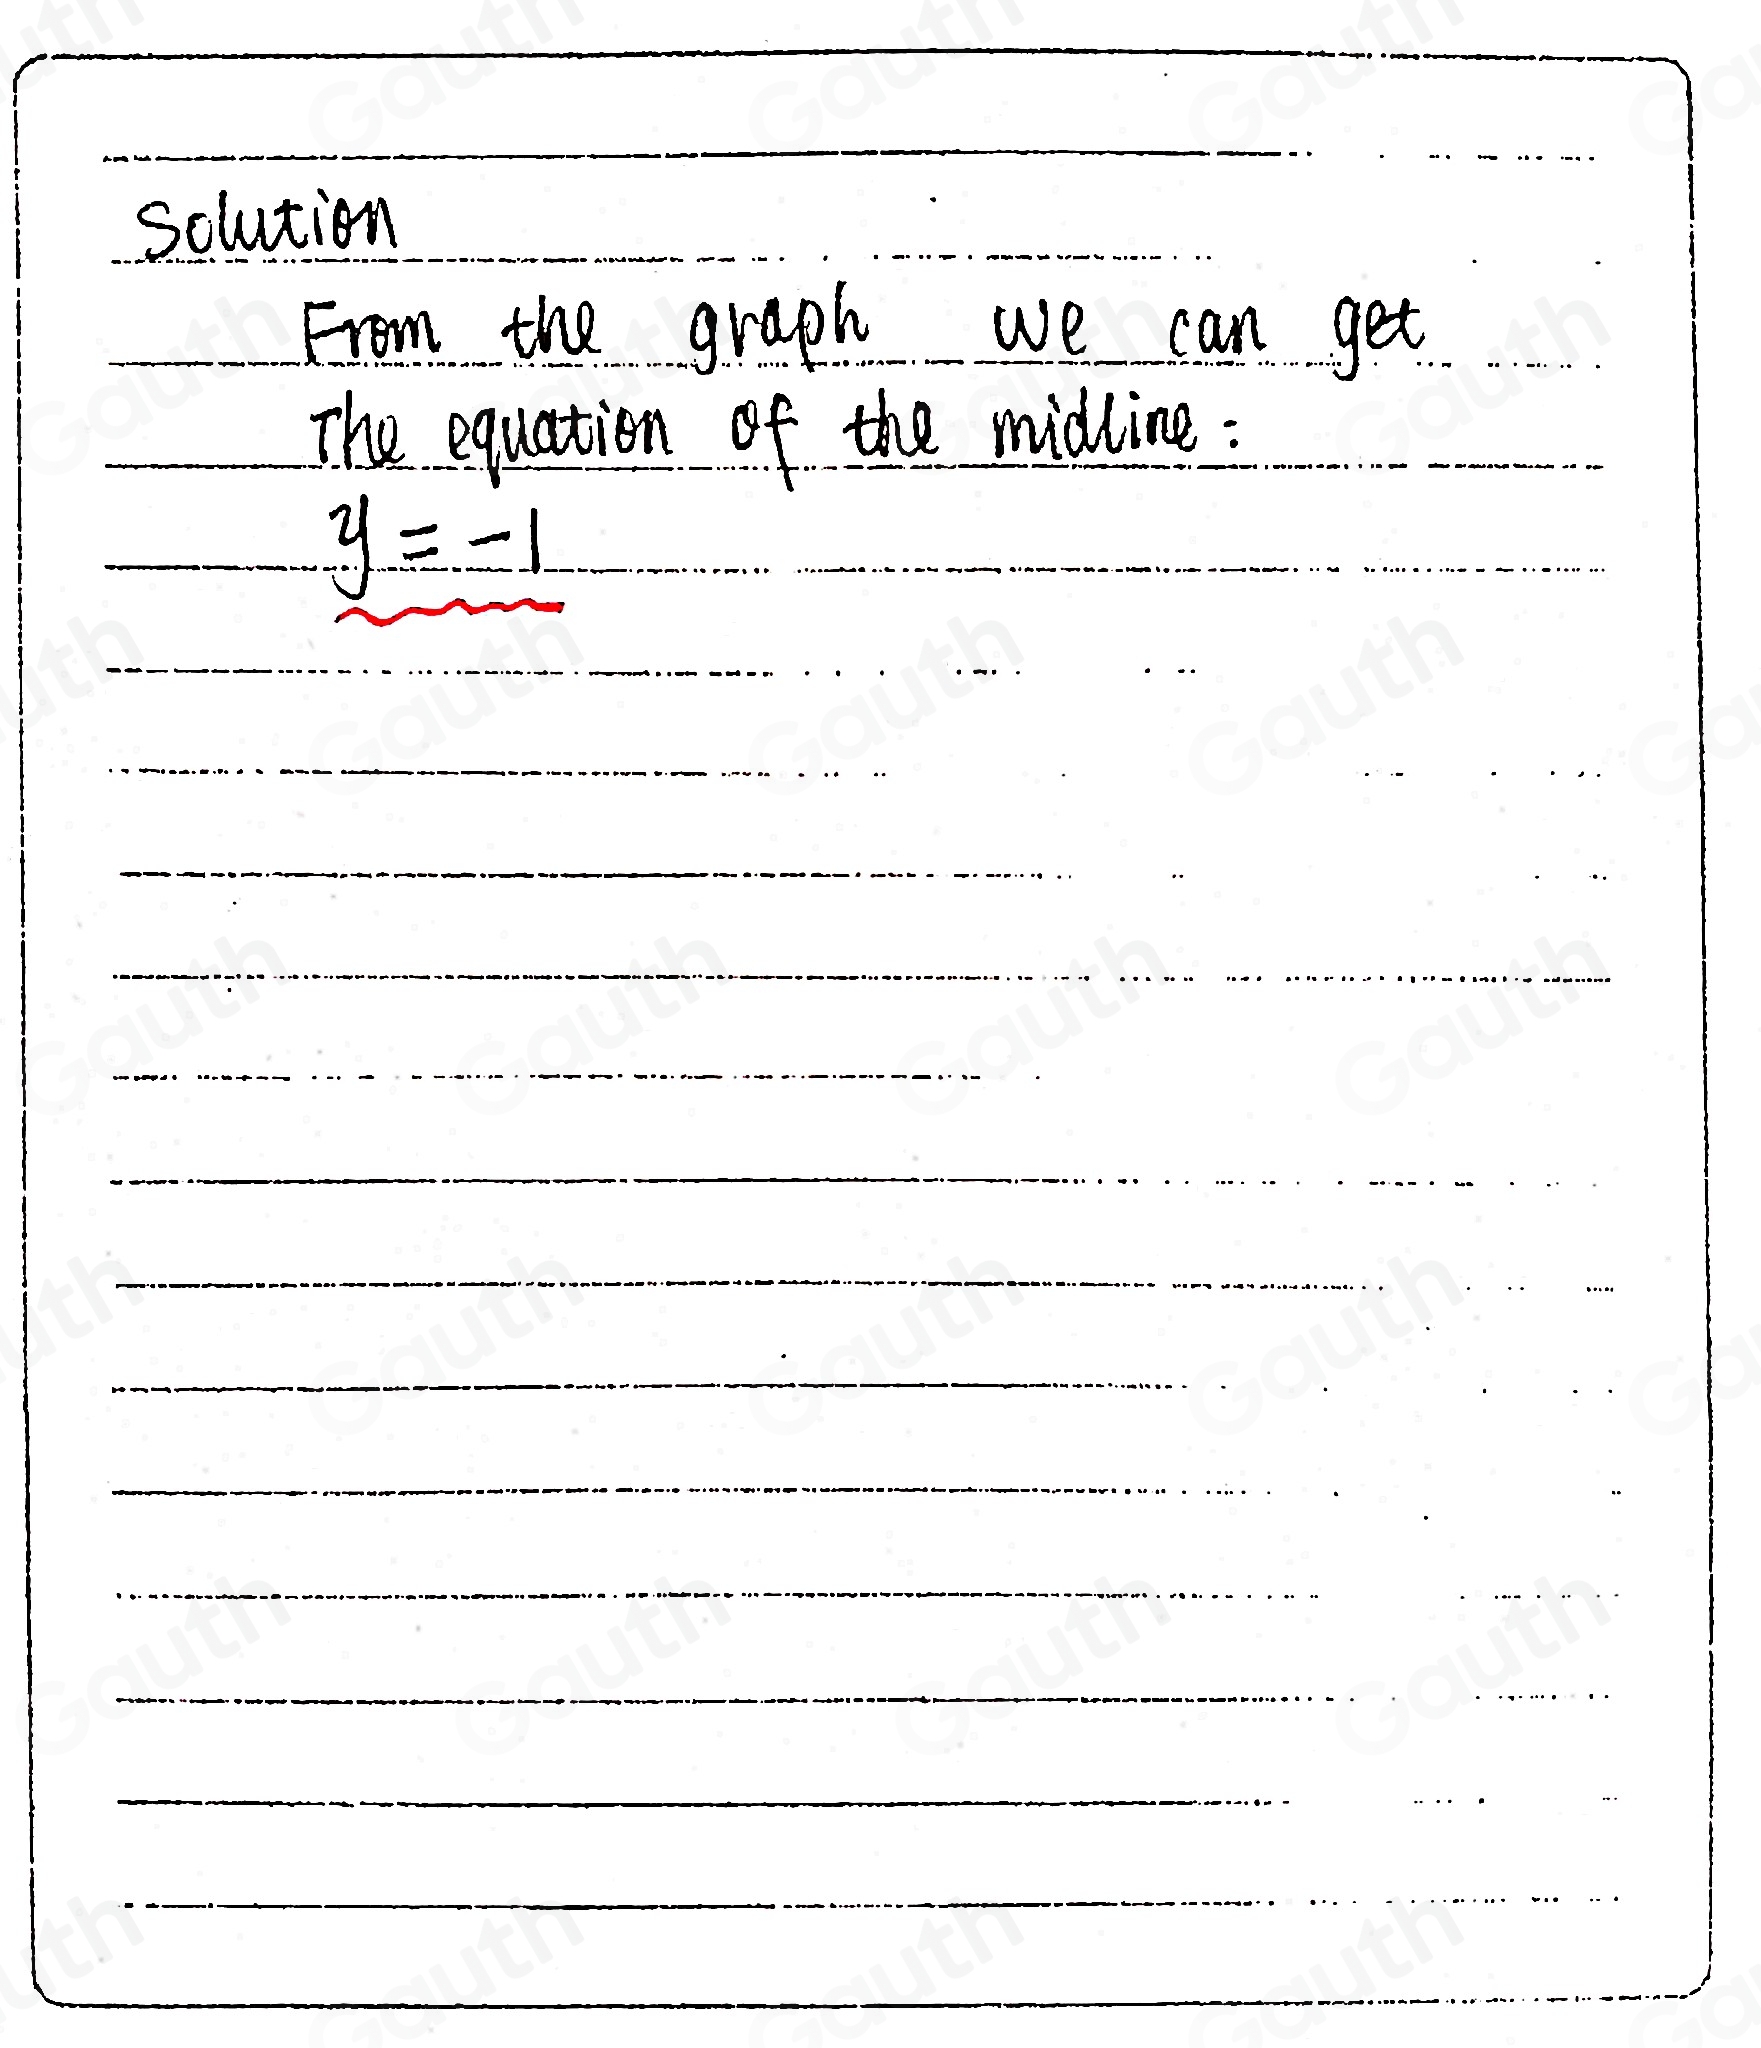 Solution
From the graph we can get
The equation of the midline:
y = -1